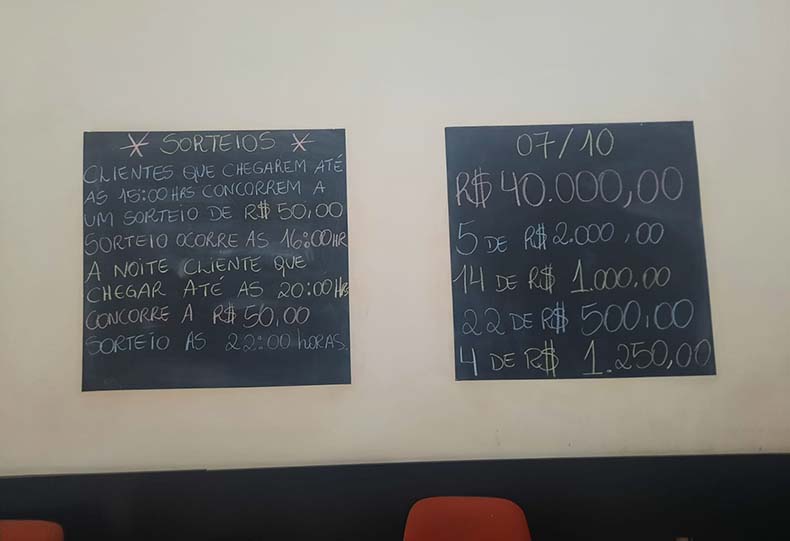 * SORTEIOS *
CLIENTES QUE CHEGAREM ATÉ
AS 15:00 HRS CONCORREM A
UM SORTEIO DE R$ 50,00
SORTEIO OCORRE AS 16:00 HR
A NOITE CLIENTE QUE
CHEGAR ATÉ AS 20:00 HRS
CONCORRE A R$ 50,00
SORTEIO AS 22:00 HORAS.
07/10
R$ 40.000,00
5 DE R$ 2.000,00
14 DE R$ 1.000,00
22 DE R$ 500,00
4 DE R$ 1.250,00